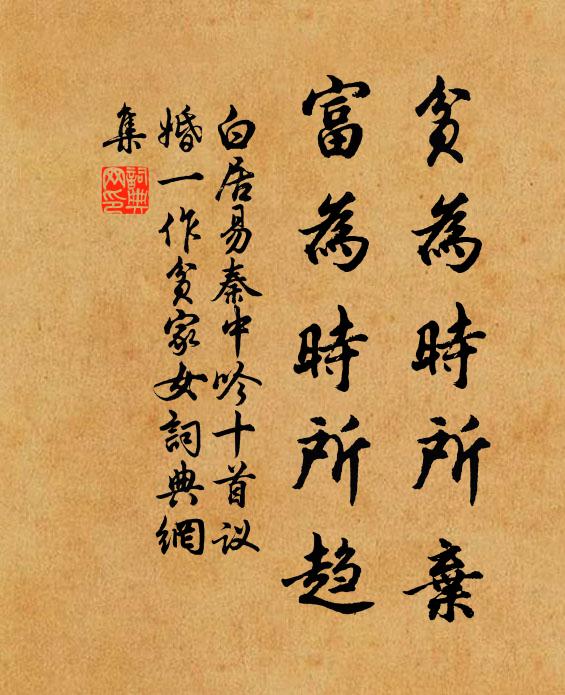 貧為時所棄
富為時所趋
白居易秦中吟十首议
婚一作貧家女詞典網
集
詞典
网印